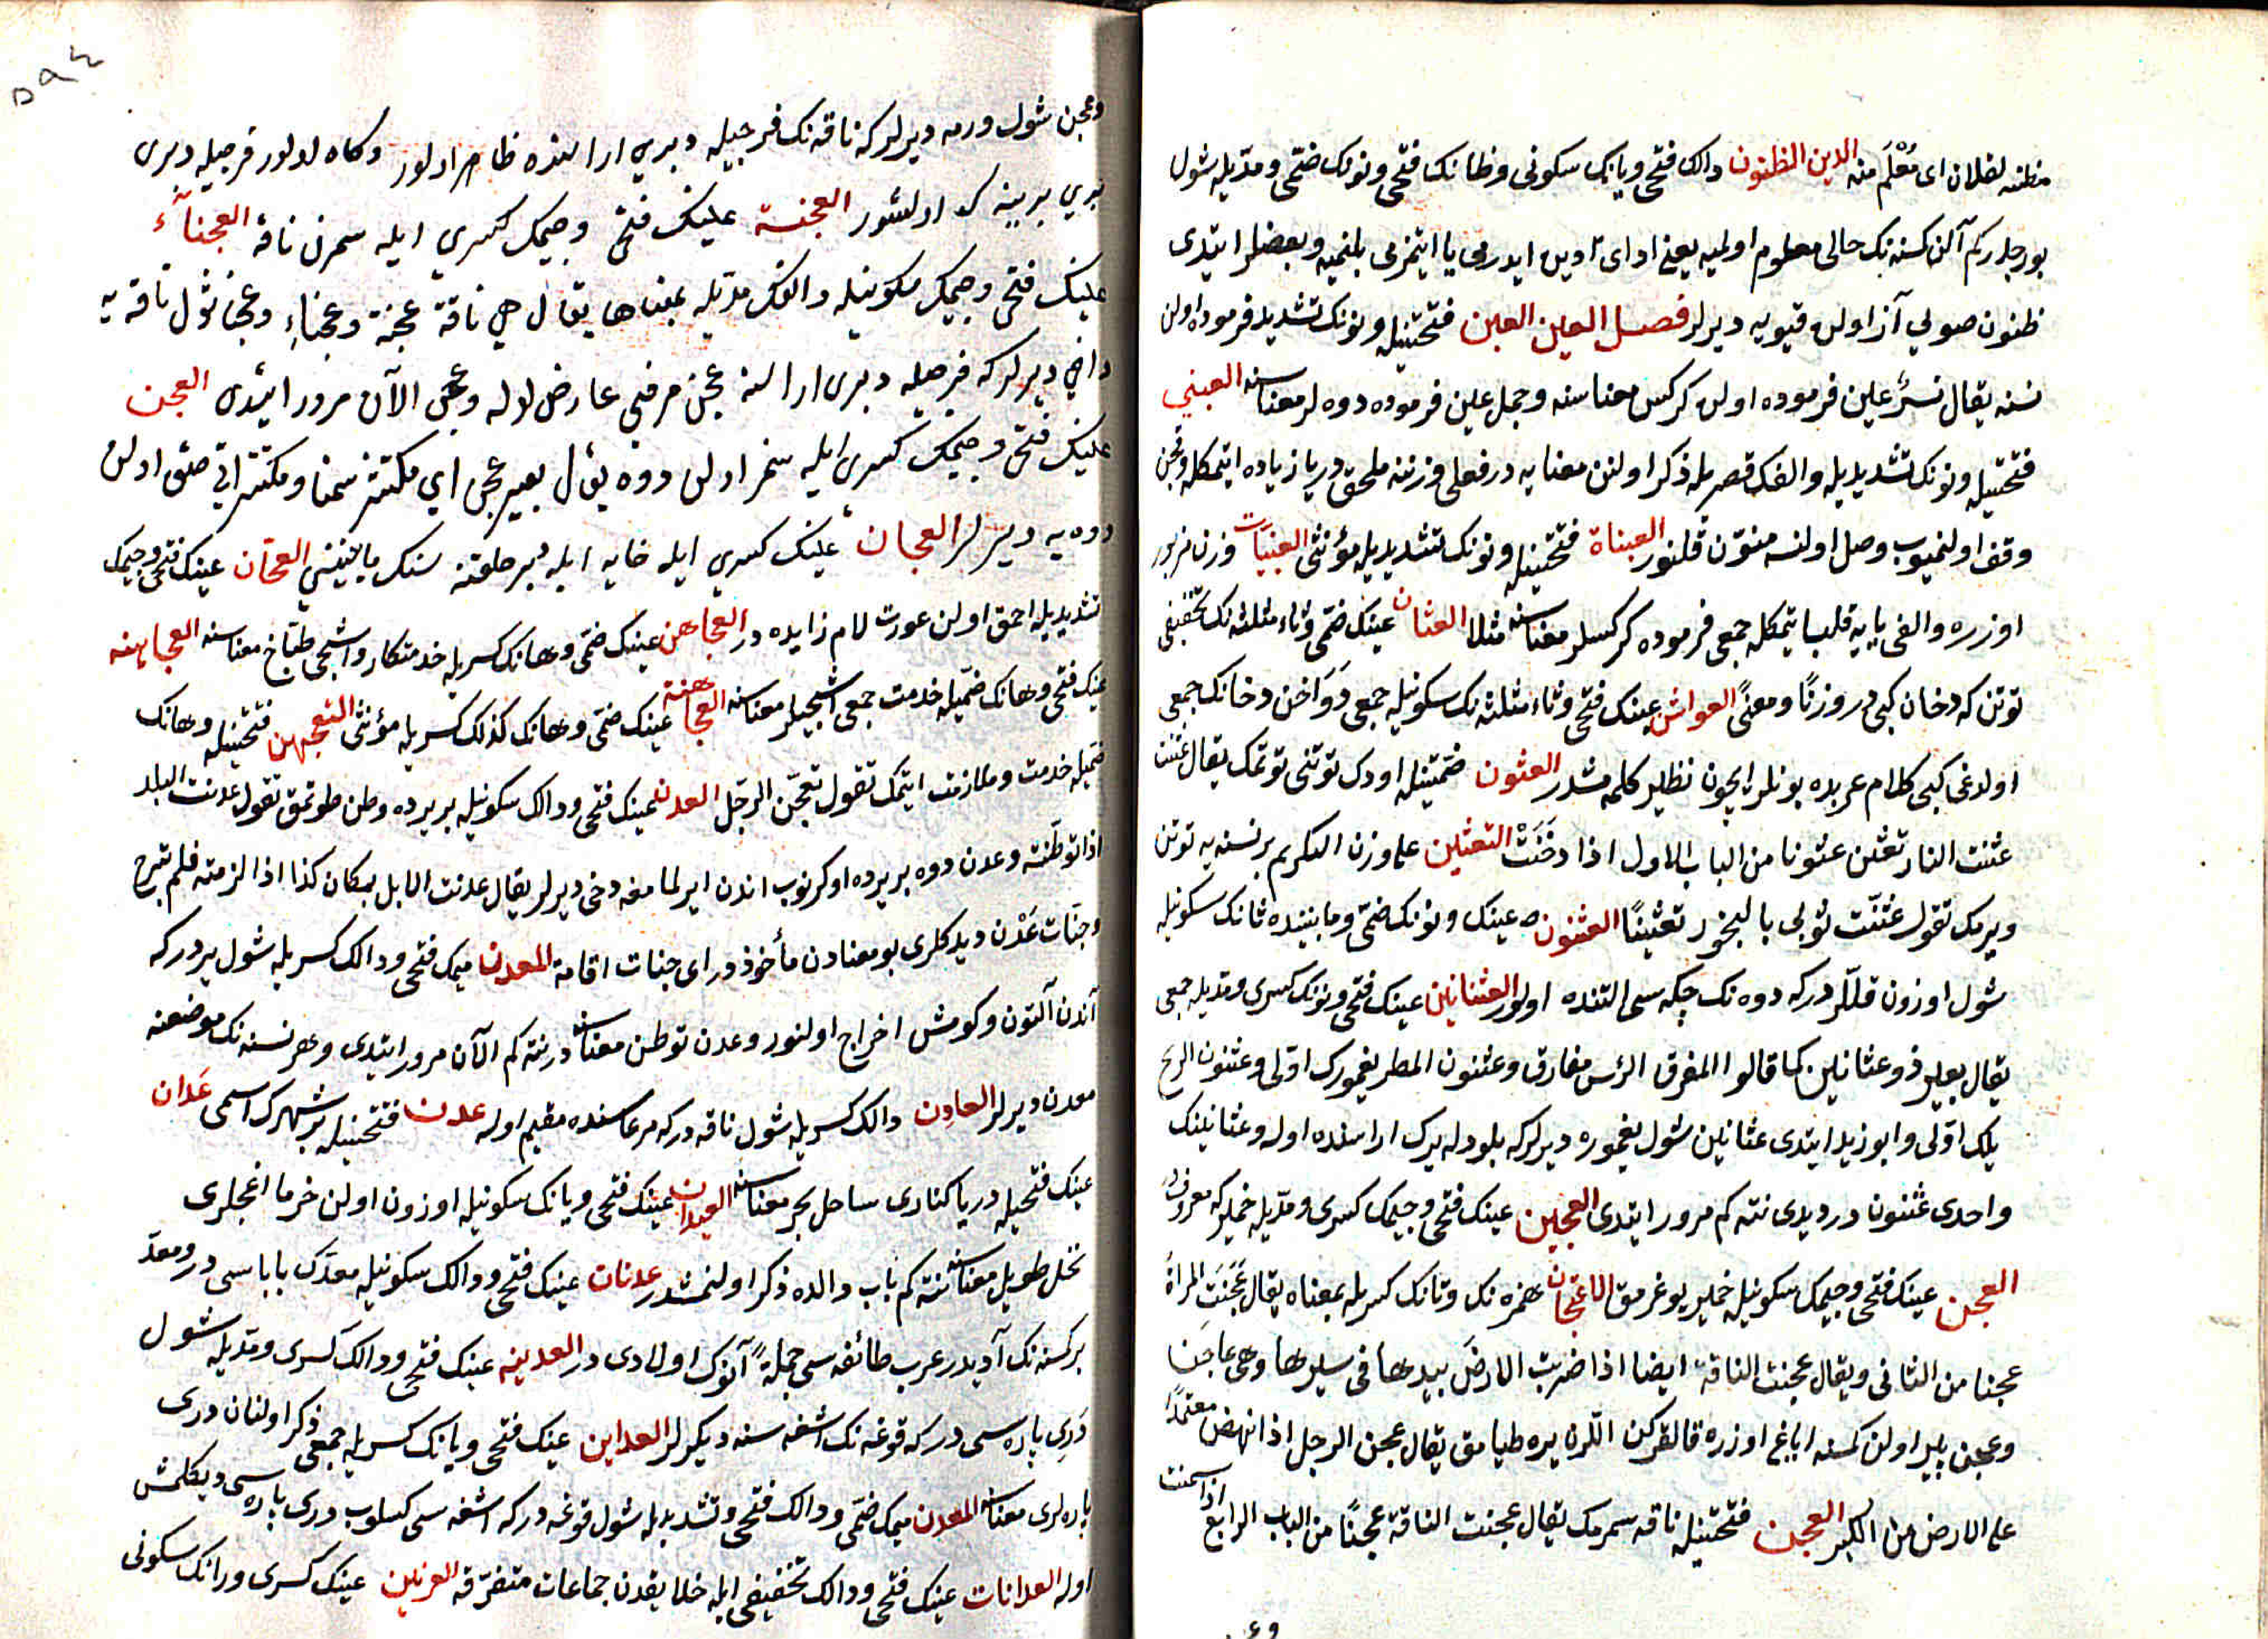 مظنه لفلان اى مُعْلَم منه الدين الظنون دالك فتحى ويانك سكونى وظانك فتحى ونونك ضمى ومديله شول
بورجدر كم آلن كمسنه نك حالى معلوم اولميه يعنى اداى تأدين ايدرمى يا ايتمزمى بلنميه وبعضلر ايتدى
ظنون صويى آز اولن قيويه ديرلر فصل العين العبن فتحتينله ونونك تشديديله فرموده اولن
نسنه يقال نسر عبن فرموده اولن كركس معناسنه وجمل عبن فرموده دوه لر معناسنه العبنى
فتحتينله ونونك تشديديله والفك قصريله ذكر اولنن معنايه در فعلى وزننه ملحق در يا زياده ايتمكله وقچن
وقف اولنميوب وصل اولنسه منوّن قلنور العبناة فتحتينله ونونك تشديديله مؤنثى العبنيات وزن مزبور
اوزره والفى يايه قلب ايتمكله جمعى فرموده كركسلر معناسنه مثلا العثان عينك ضمى وثاء مثلثه نك تخفيفى
توتن كه دخان كبى در وزنًا ومعنًى العواثن عينك فتحى وثاء مثلثه نك سكونيله جمعى دَوَاخن دخانك جمعى
اولدغى كبى كلام عربده بونلر ايچون نظير كلمه مشدر العثون ضمتينله اودك توتنى توتمك يقال عثنت
عثنت النار تعثن عثونا من الباب الاول اذا دخَنَتْ التعثين على وزن التكريم بر نسنه يه توتن
ويرمك تقول عثنت ثوبى بالبخور تعثينًا العثنون عينك ونونك ضمى ومابيننده ثانك سكونيله
شول اوزون قللر در كه دوه نك چكه سى التنده اولور العثانين عينك فتحى ونونك كسرى ومديله جمعى
يقال بعير ذو عثانين كما قالوا المفرق الرئس مفارق وعثنون المطر يغمورك اوّلى وعثنون الريح
يلك اوّلى وابو زيد ايتدى عثانين شول يغموره ديرلر كه بلود له يرك اراسنده اوله وعثانينك
واحدى عثنون در ديدى نته كم مرور ايتدى العجين عينك فتحى وجيمك كسرى ومديله خميركه معروفدر
العجن عينك فتحى وجيمك سكونيله خمير يوغرمق الاعتجان همزه نك وتانك كسريله بمعناه يقال عَجَنَتِ المرأة
عجنا من الثانى ويقال عجنت الناقة ايضا اذا ضربت الارضَ بيدها فى سيرها وهى عاجن
وعجن پير اولن كمسنه اياغ اوزره قالقركن اللرن يره طيامق يقال عجن الرجل اذا نهض معتمدًا
على الارض من الكبر العجن فتحتينله ناقه سمرمك يقال عجنت الناقة عجنًا من الباب الرابع اذا سمنت
وعجن شول ورمه ديرلر كه ناقه نك فرجيله دبرى اراسنده ظاهر اولور وكاه اولور فرجيله دبرى
برى برينه اولشور العجنة عينك فتحى وجيمك كسرى ايله سمرن ناقه العجناء
عينك فتحى وجيمك سكونيله والفك مديله بمعناها يقال هى ناقة عجنة وعجناء وعجنا شول ناقه يه
داخى ديرلر كه فرجيله دبرى اراسنه عجن مرضى عارض اوله وعجن الآن مرور ايتدى العجن
عينك فتحى وجيمك كسرى ايله سمز اولن دوه يقال بعير عجن اى مكتنز سمنا ومكتنز اتى صقى اولن
دوه يه ديرلر العجان عينك كسرى ايله خايه ايله دبر حلقه سنك مابينى العجّان عينك فتحى وجيمك
تشديديله احمق اولن عورت لام زايده در العجاهن عينك ضمى وهانك كسريله خدمتكار واشچى طبّاخ معناسنه العجاهنه
عينك فتحى وهانك ضميله خدمت جمعى اشچيلر معناسنه العجاهنة عينك ضمى وهانك كذلك كسريله مؤنثى التعجهن فتحتينله وهانك
ضميله خدمت وملازمت ايتمك تقول تعجّن الرجل العدن عينك فتحى ودالك سكونيله بر يرده وطن طوتمق تقول عدنت البلد
اذا توطّنته وعدن دوه بر يرده اوكرنوب اندن ايرلمامغه دخى ديرلر يقال عدنت الابل بمكان كذا اذا لزمته فلم تبرح
وجنّات عَدْن ديدكلرى بو معنادن مأخوذ در اى جنات اقامة المعدن ميمك فتحى ودالك كسريله شول يردر كه
آندن آلتون وكومش اخراج اولنور وعدن توطن معناسنه در نته كم الآن مرور ايتدى وهر نسنه نك موضعنه
معدن ديرلر العادن دالك كسريله شول ناقه در كه مرعاسنده مقيم اوله عدن فتحتينله بر شهرك اسمى عَدان
عينك فتحيله دريا كنارى ساحل بحر معناسنه العيدان عينك فتحى ويانك سكونيله اوزون اولن خرما اغجلرى
نخل طويل معناسنه نته كم باب دالده ذكر اولنمشدر عدنان عينك فتحى ودالك سكونيله معدّك باباسى در ومعدّ
بر كسنه نك آديدر عرب طائفه سى جملة آنوك اولادى در العدينه عينك فتحى ودالك كسرى ومديله شول
دَرى پاره سى در كه قوغه نك اشغه سنه ديكرلر العداين عينك فتحى ويانك كسريله جمعى ذكر اولنان درى
پاره لرى معناسنه المعدن ميمك ضمى ودالك فتحى وتشديديله شول قوغه در كه اشغه سى كسلوب درى پاره سى ديكلمش
اوله العدانات عينك فتحى ودالك تخفيفى ايله خلايقدن جماعات متفرّقه العرنين عينك كسرى ورانك سكونى